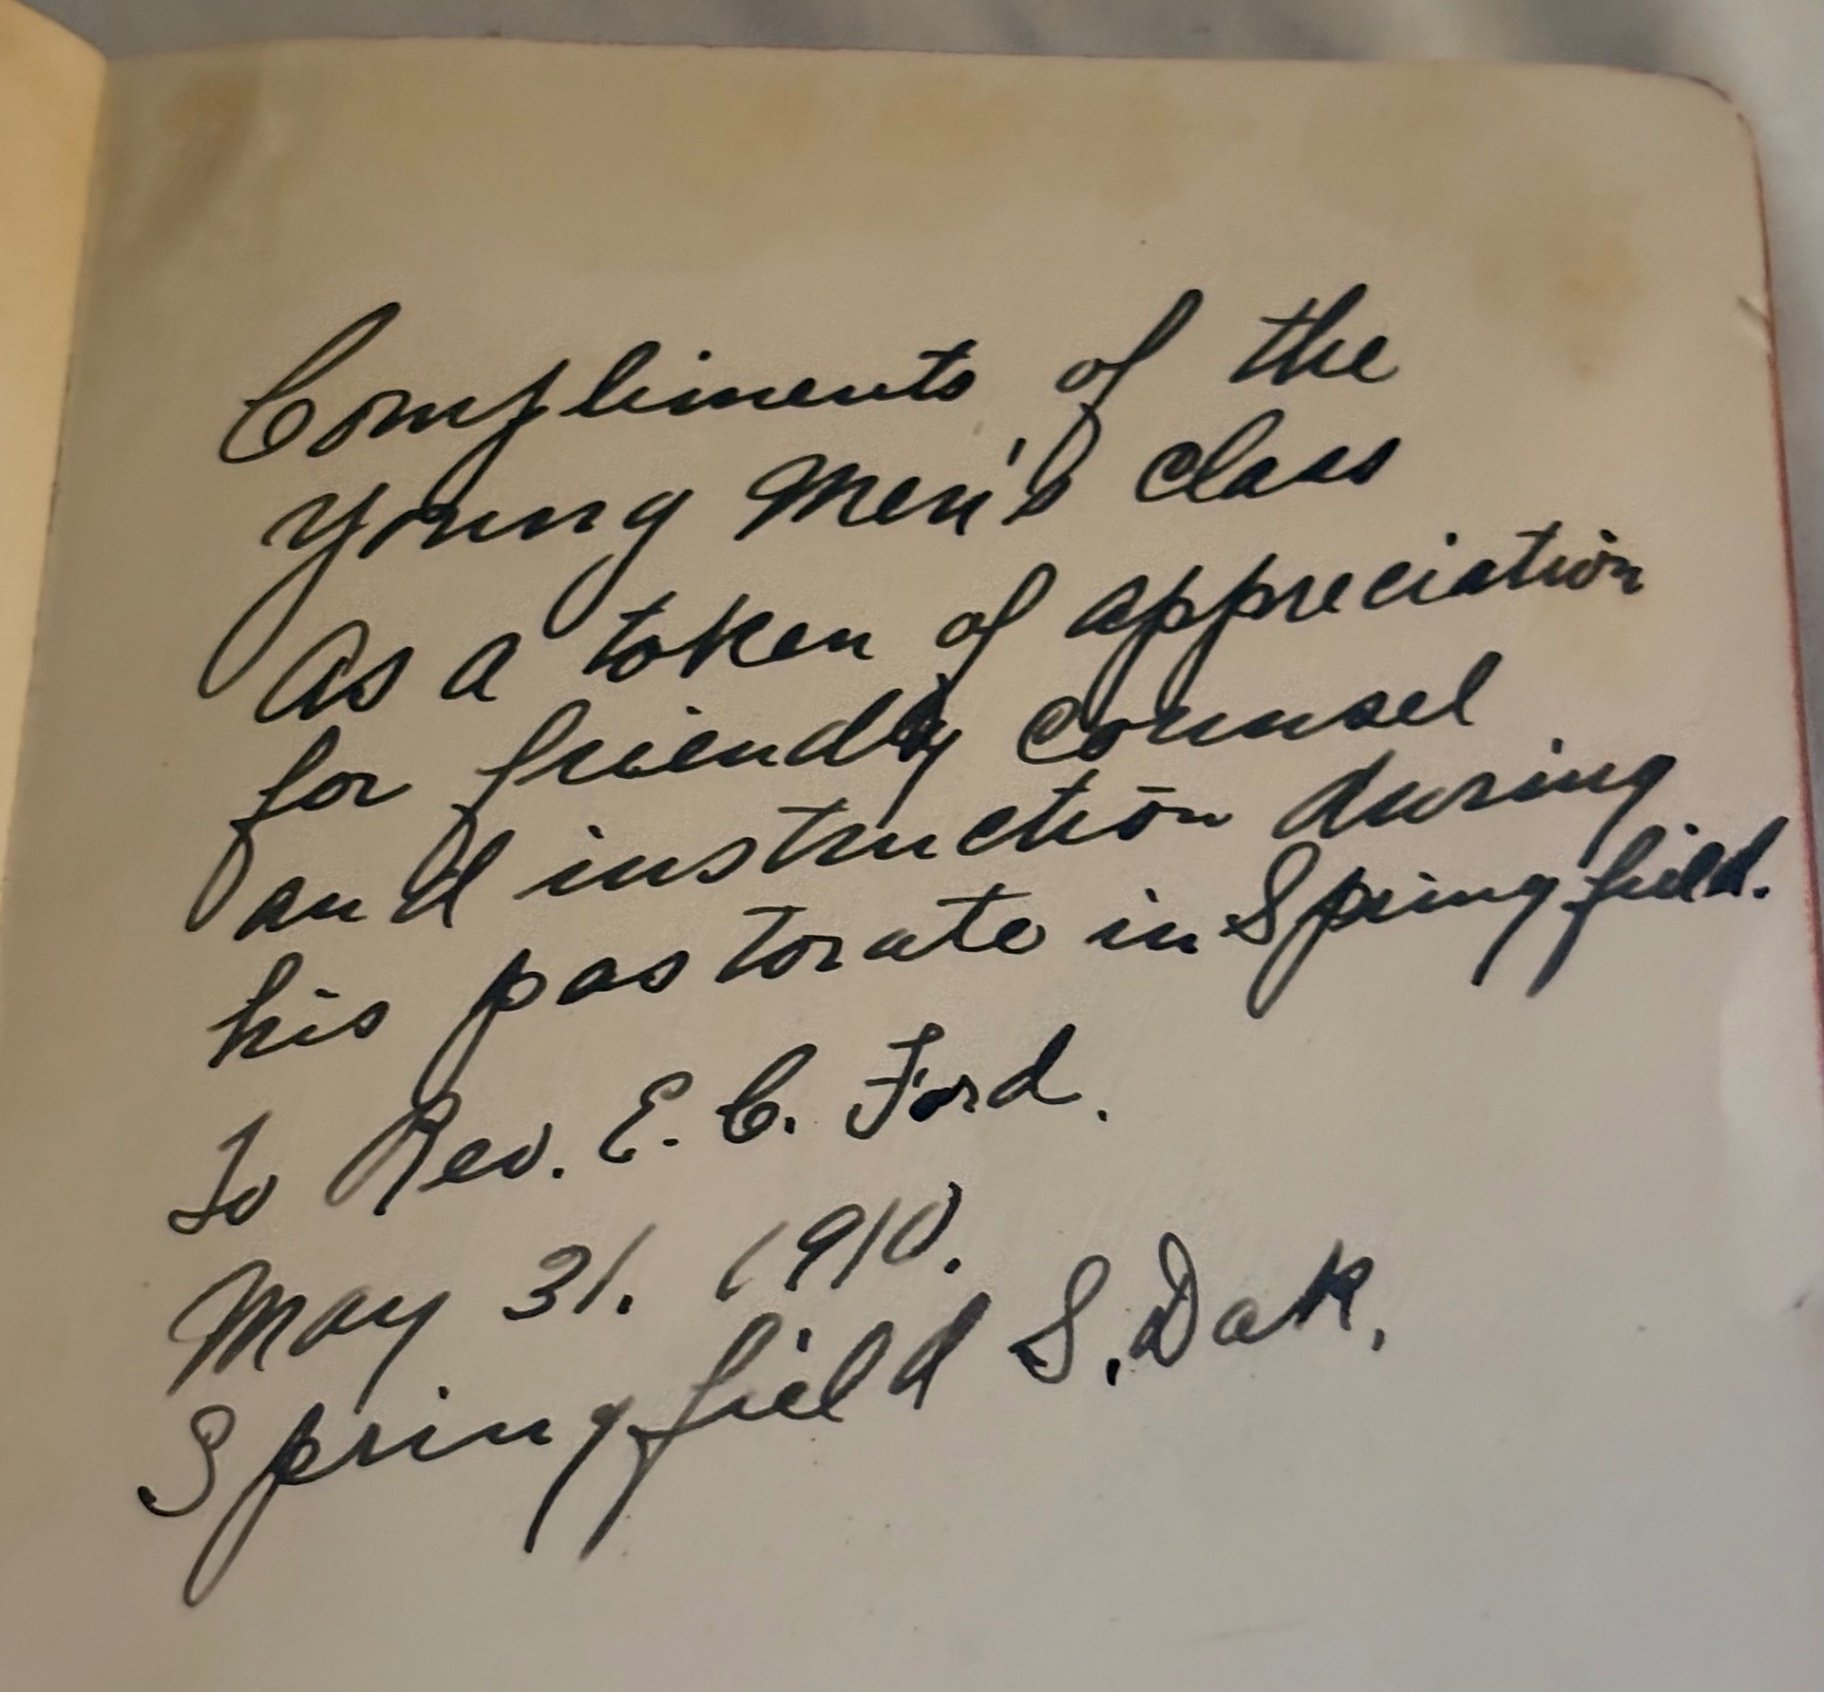 Compliments of the
Young Men's Class
As a token of appreciation
for friendly counsel
and instruction during
his pastorate in Springfield.
To Rev. E. C. Ford.
May 31. 1910.
Springfield S. Dak.